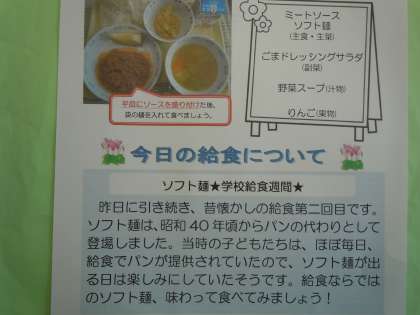 平皿にソースを盛り付けた後、
袋の麺を入れて食べましょう。
ミートソース
ソフト麺
(主食・主菜)
ごまドレッシングサラダ
(副菜)
野菜スープ(汁物)
りんご(果物)
今日の給食について
ソフト麺★学校給食週間★
昨日に引き続き、昔懐かしの給食第二回目です。
ソフト麺は、昭和40年頃からパンの代わりとして
登場しました。当時の子どもたちは、ほぼ毎日、
給食でパンが提供されていたので、ソフト麺が出
る日は楽しみにしていたそうです。給食ならでは
のソフト麺、味わって食べてみましょう！